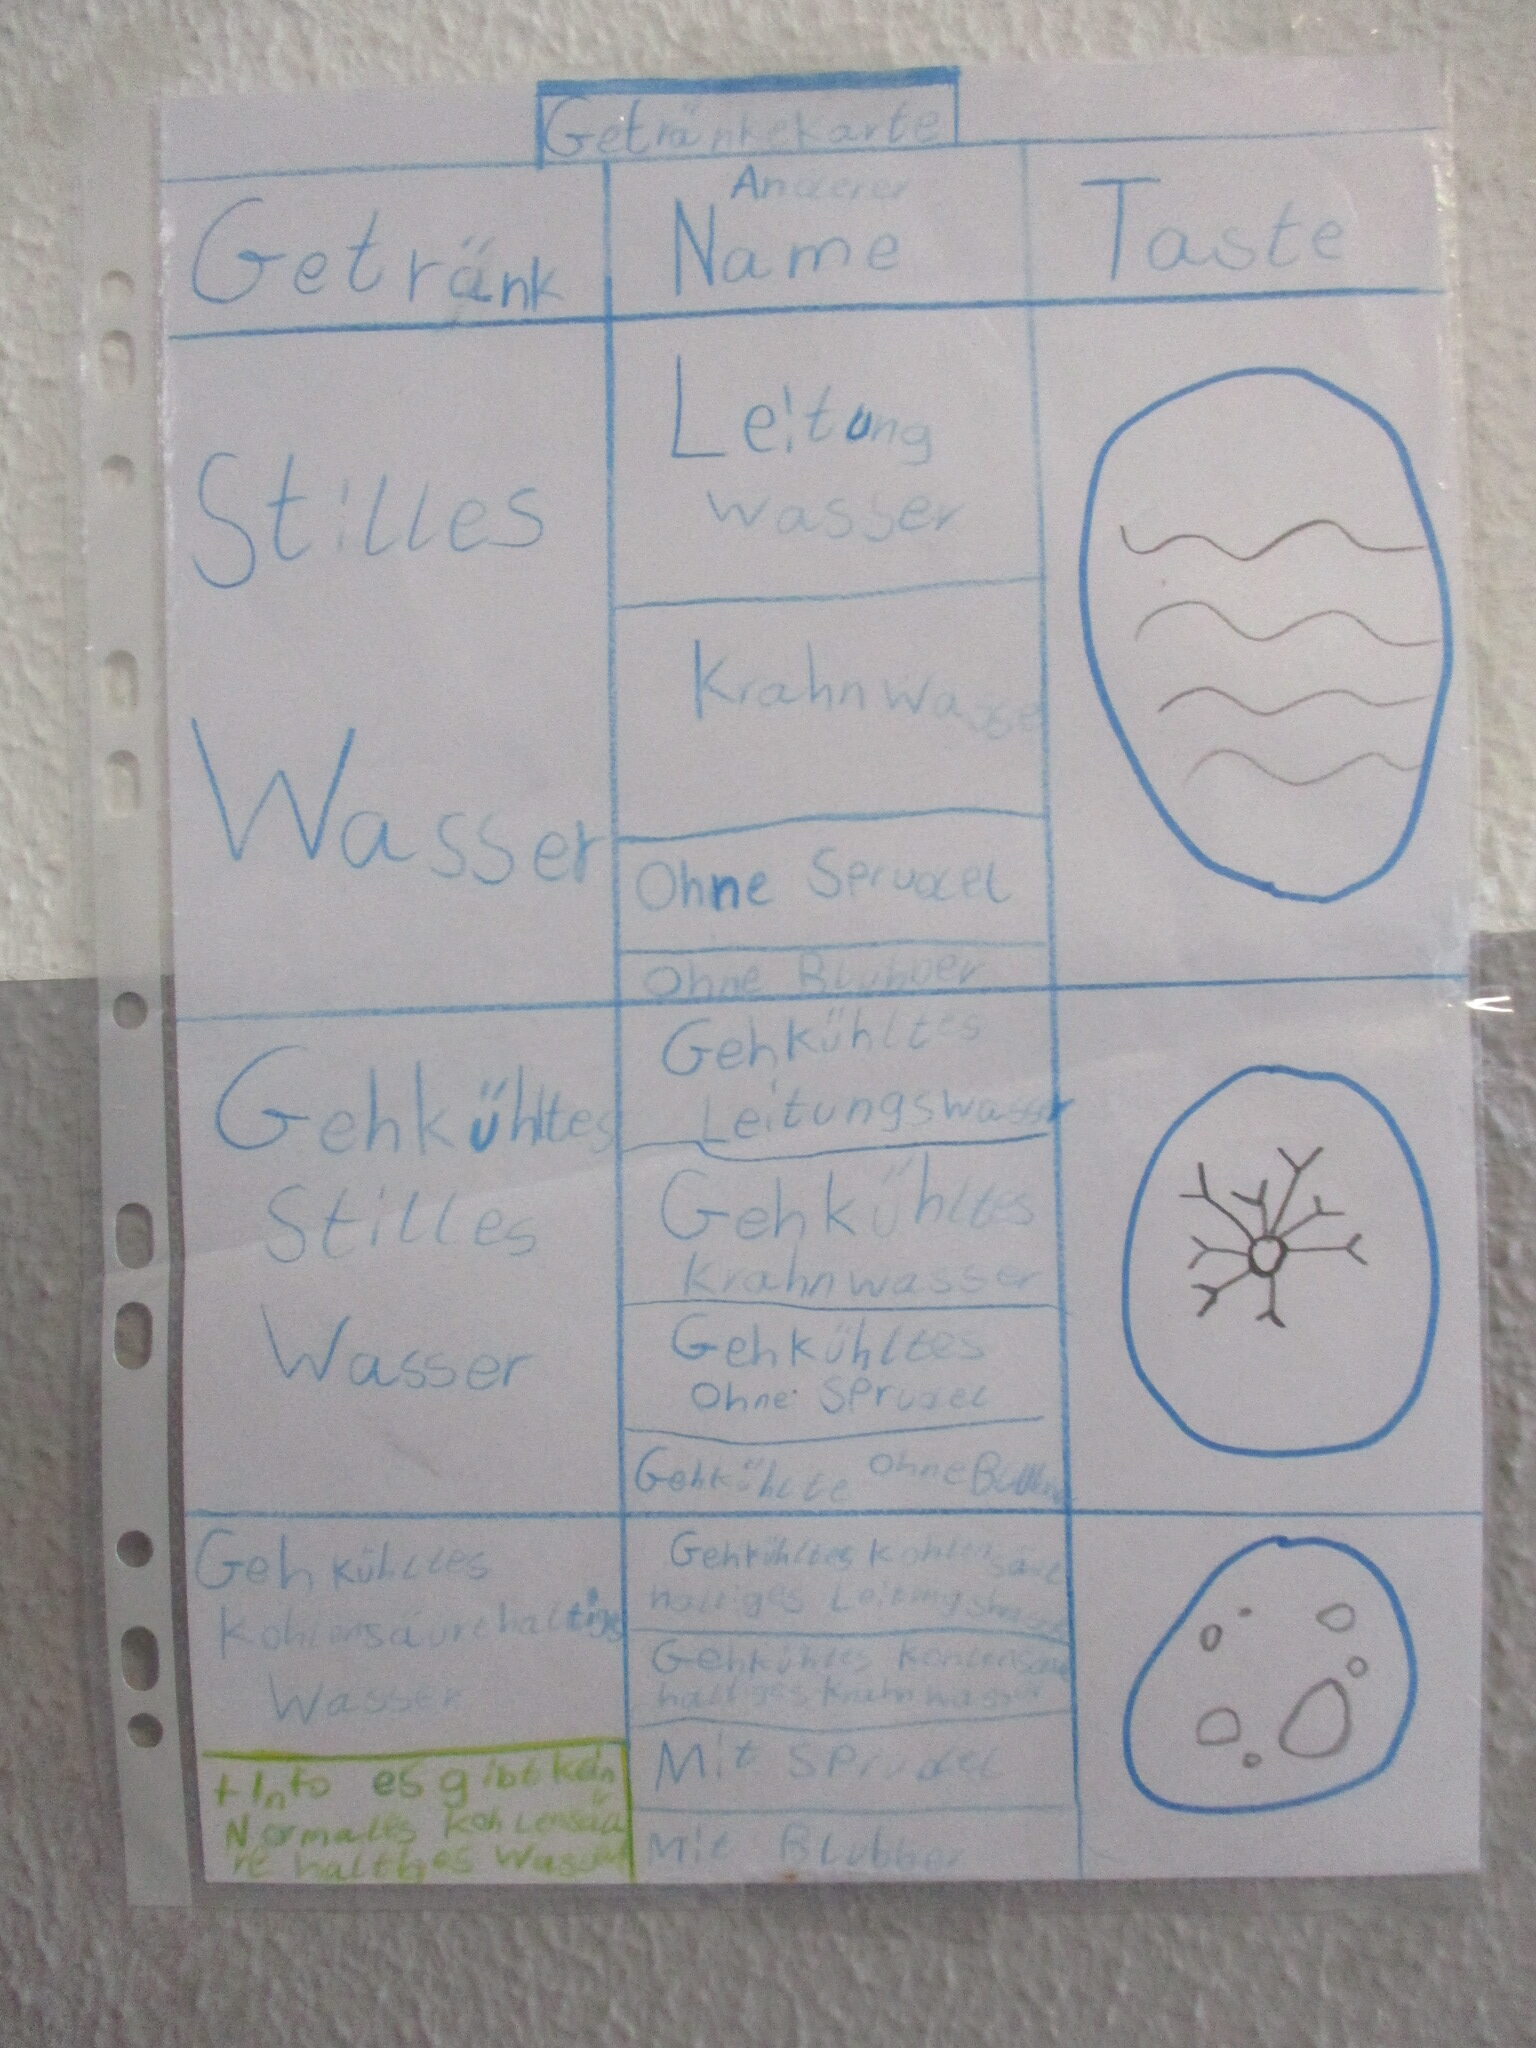 Getränkekarte
Getränk
Anderer
Name
Taste
Stilles
Wasser
Leitung
wasser
Krahnwasse
Ohne Sprudel
Ohne Blubber
Gehkühltes
Stilles
Wasser
Gehkühltes
Leitungswasser
Gehkühltes
Krahnwasser
Gehkühltes
Ohne Sprudel
Gehkühlte Ohne
Gehkühltes
Kohlensäurehaltiges
Wasser
+ Info es gibt kein
Normales Kohlensäu
re haltiges Wasser
Gehkühltes Kohlensäure
haltiges
Gehkühltes Kohlensäure
haltiges Krahnwasser
Mit Sprudel
Mit Blubber